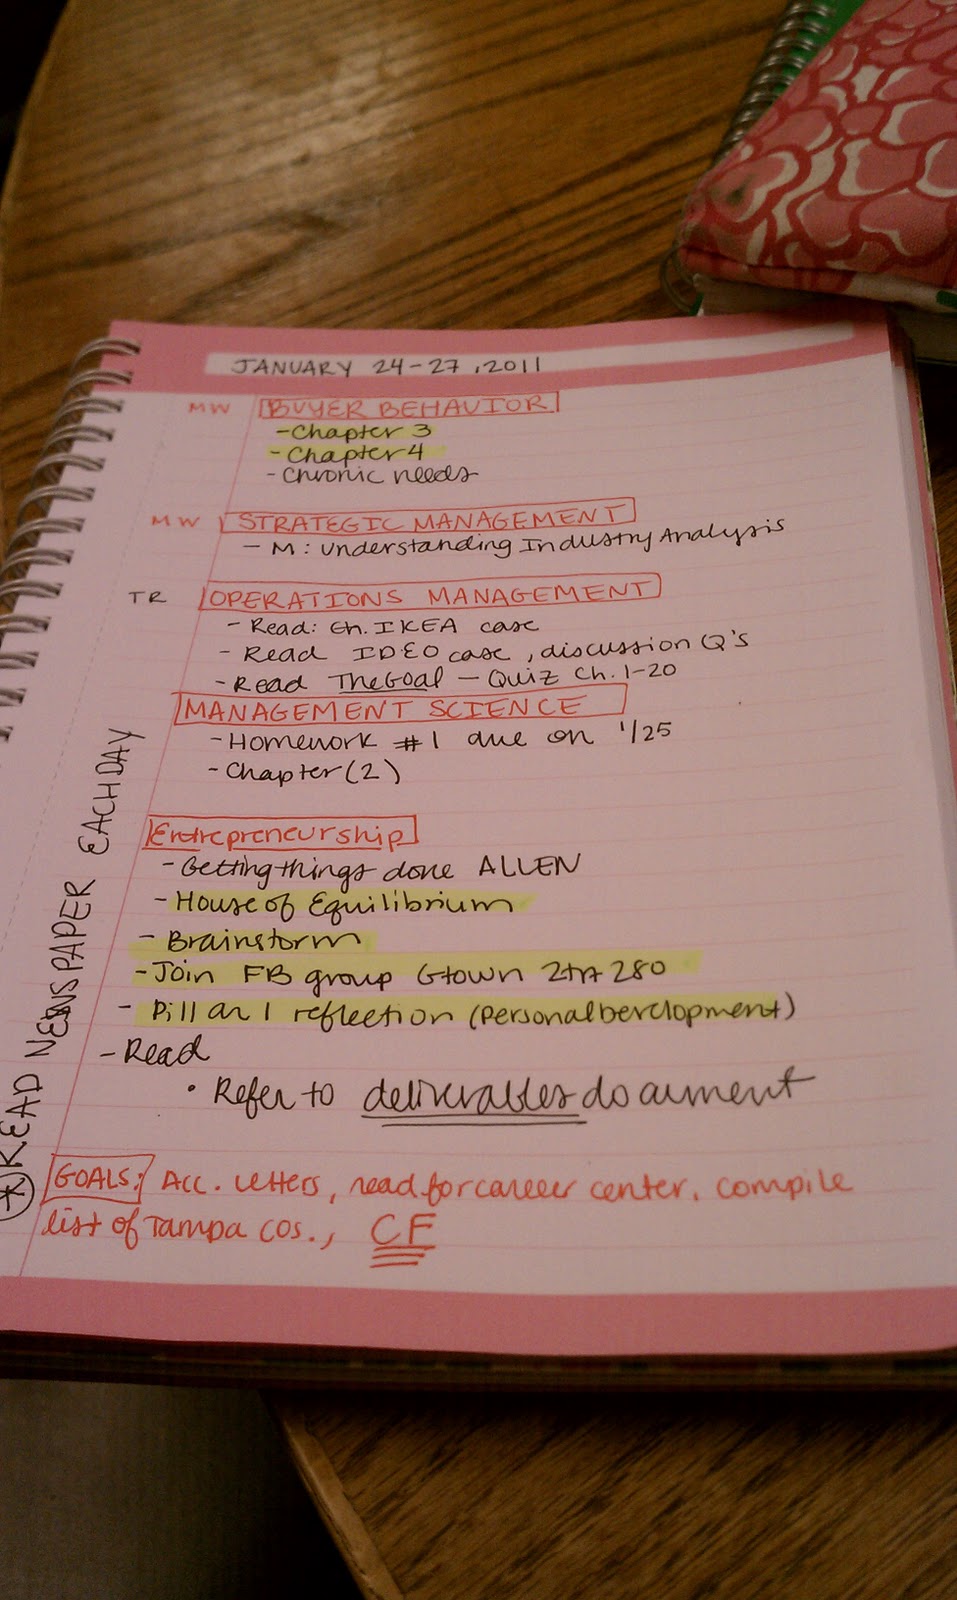 JANUARY 24-27, 2011
MW BUYER BEHAVIOR
- Chapter 3
- Chapter 4
- Chronic needs
MW STRATEGIC MANAGEMENT
- M: Understanding Industry Analysis
TR OPERATIONS MANAGEMENT
- Read: Ch. IKEA case
- Read IDEO case, discussion Q's
- Read The Goal - Quiz Ch. 1-20
MANAGEMENT SCIENCE
- Homework #1 due on 1/25
- Chapter (2)
Entrepreneurship
- Getting things done ALLEN
- House of Equilibrium
- Brainstorm
- Join FB group Gtown 280
- Pillar 1 reflection (Personal Development)
- Read
• Refer to deliverables document
READ NEWSPAPER EACH DAY
GOALS: Acc. Letters, read for career center, compile
list of Tampa cos., CF